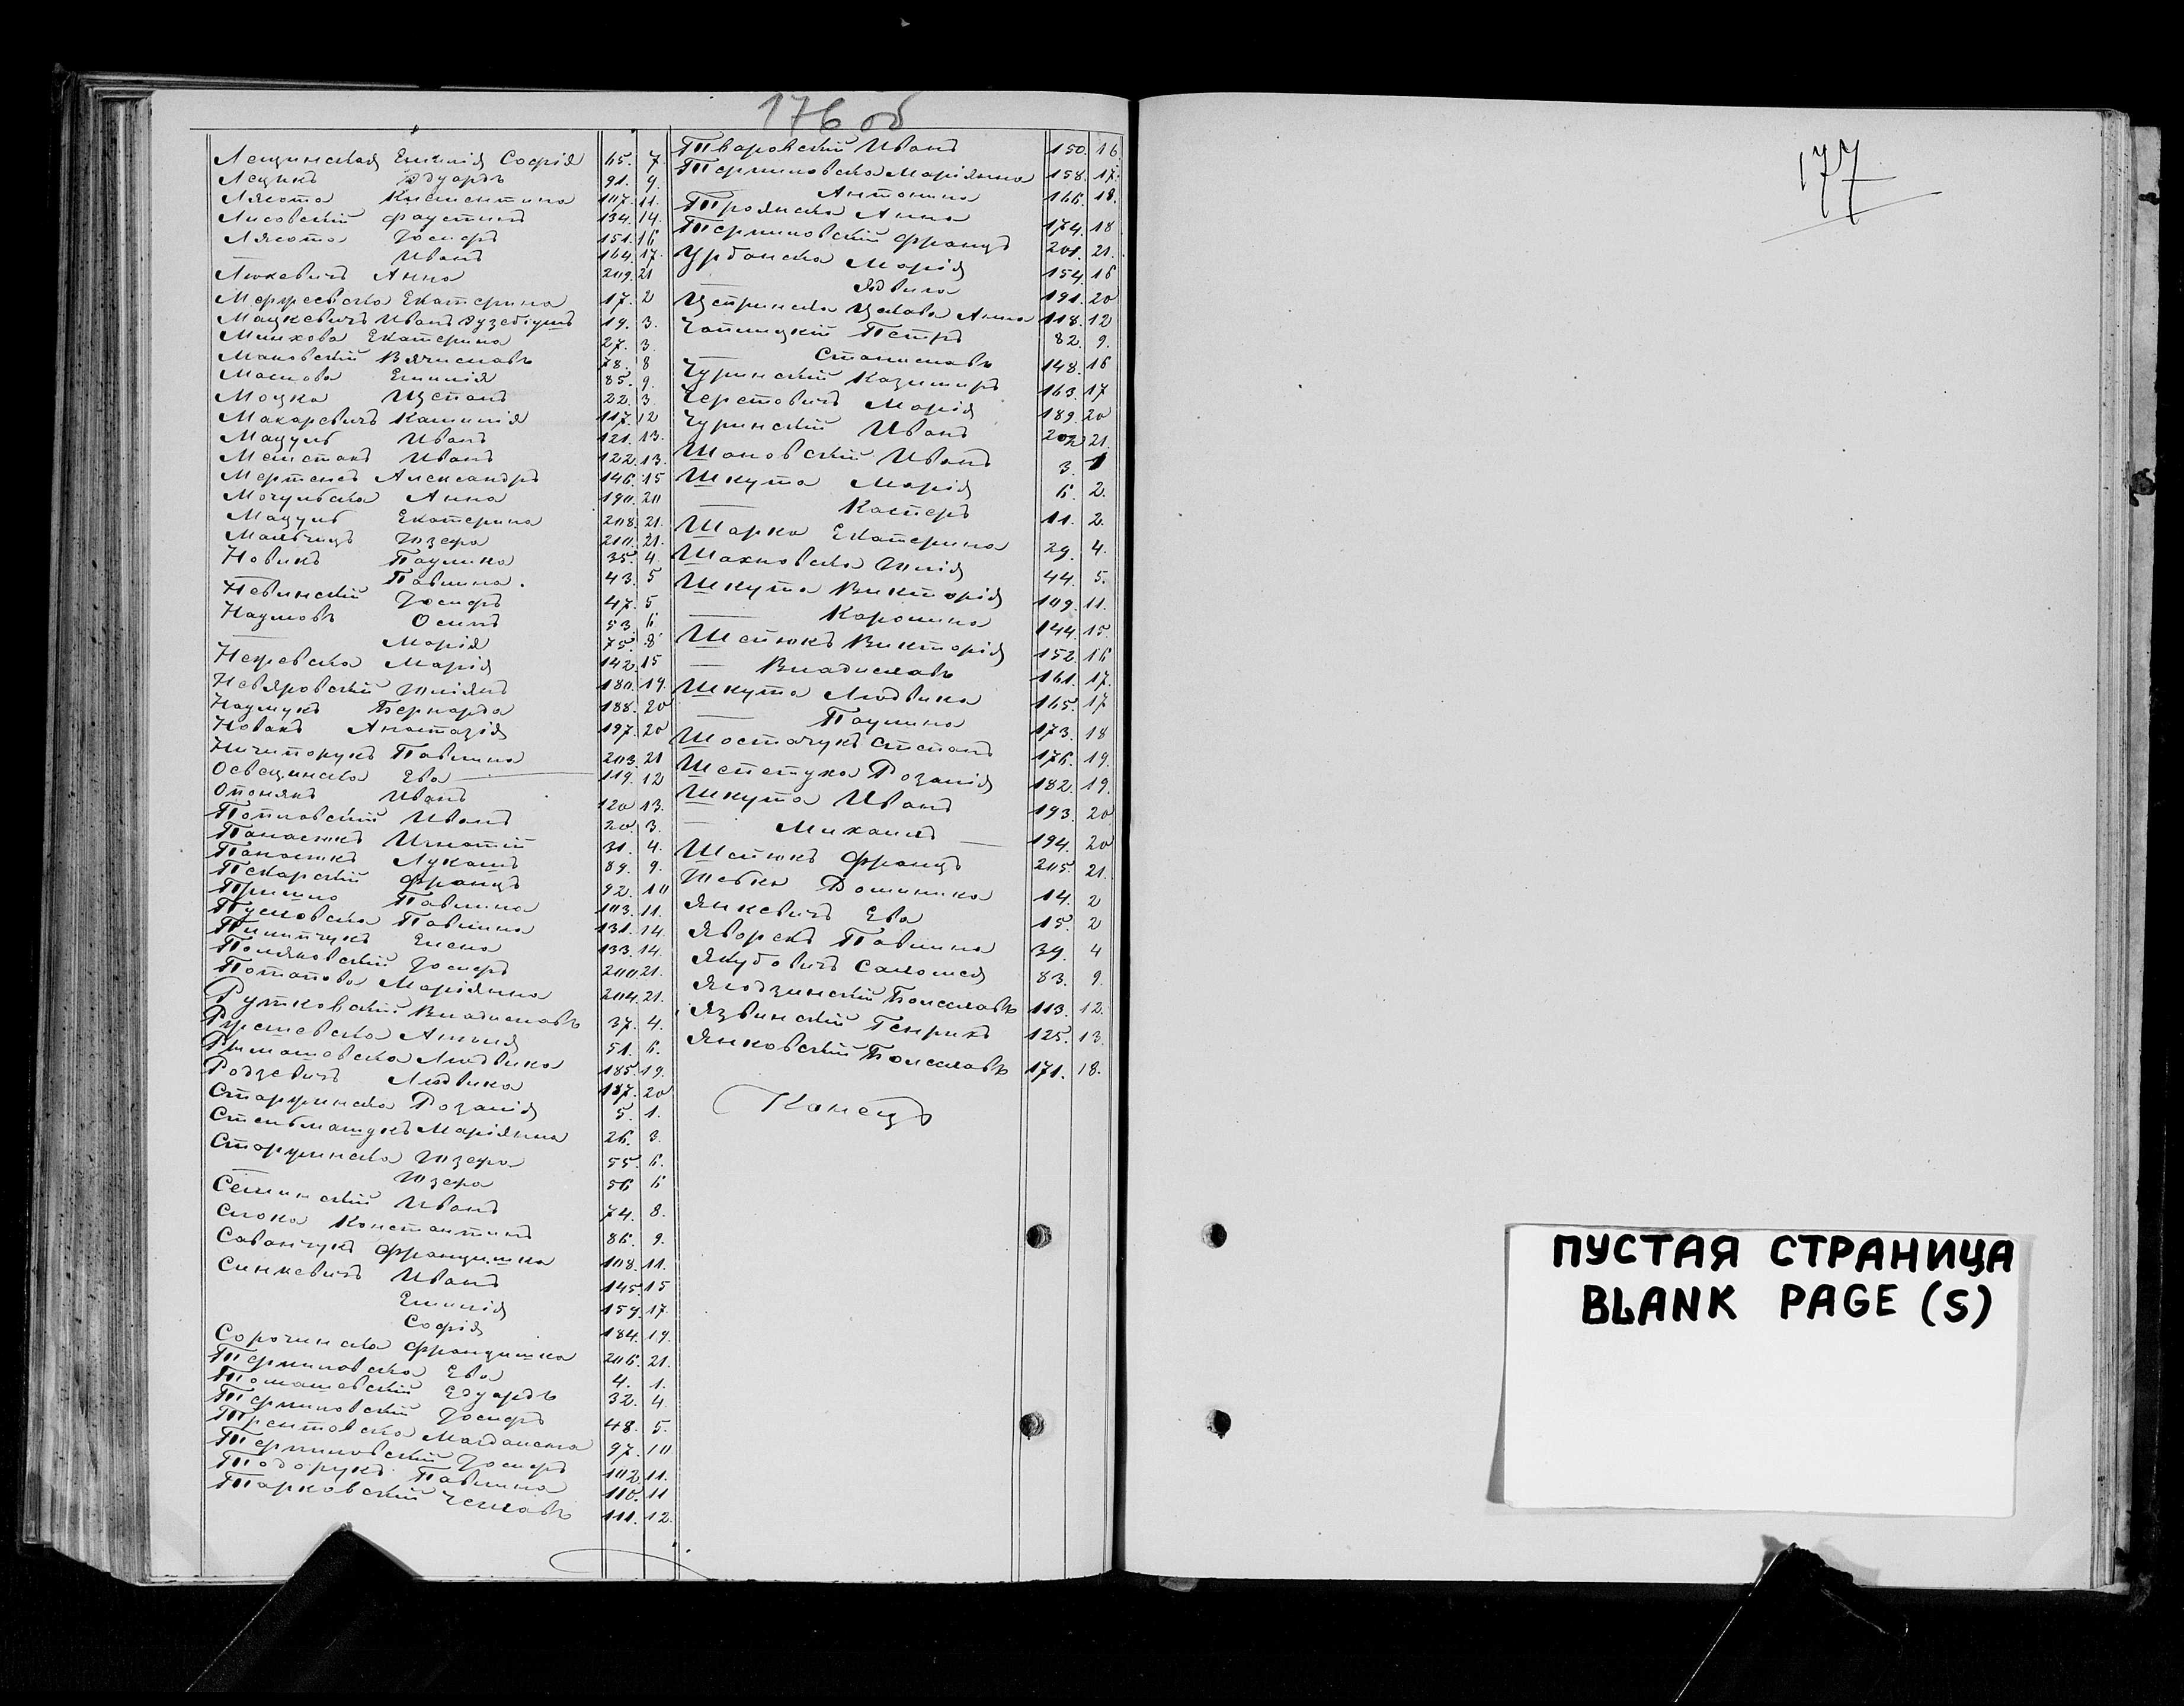 176 об
Лещинская Емилія Софія 65. 7.
Лещикъ Эдуардъ 91. 9.
Лясота Климентина 107. 11.
Лисовскій Фаустинъ 134. 14.
Лясота Іосифъ 151. 16
— Иванъ 164. 17.
Люкевичъ Анна 209. 21
Мержеевска Екатерина 17. 2
Мацкевичъ Иванъ Эузебіушъ 19. 3.
Минхова Екатерина 27. 3.
Маковскій Вячеславъ 78. 8
Емилія 85. 9.
Моцка Щепанъ 22. 3.
Макаревичъ Камилія 117. 12
Мацуль Иванъ 121. 13.
Иванъ 122. 13.
Мертенсъ Александръ 146. 15
Могульска Анна 190. 20
Мацуль Екатерина 208. 21.
Юзефа 210. 21.
Новикъ Паулина 35. 4.
— Павлина. 43. 5
Невинскій Іосифъ 47. 5
Наумовъ Осипъ 53. 6
— Марія 75. 8
Марія 142. 15
Невяровскій Юліянъ 180. 19.
Наумукъ Бернарда 188. 20
Новакъ Анастазія 197. 20
Ничипорукъ Павлина 203. 21
Освецинска Ева 119. 12
Опонякъ Иванъ 120 13.
Поплавскій Иванъ 20. 3.
Панасюкъ Игнатій 31. 4.
Панасюкъ Лукашъ 89. 9.
Пекарскій Францъ 92. 10
Павлина 103. 11.
Пусловска Павлина 131. 14.
Пилипчукъ Елена 133. 14.
Поляковскій Іосифъ 200. 21.
Потапова Маріянна 204. 21.
Рутковскій Владиславъ 37. 4.
51. 6.
Людвика 185. 19.
Родзевичъ Людвика 187. 20
Старжинска Розалія 5. 1.
Стельмащукъ Маріянна 26. 3.
Старжинска Юзефа 55. 6.
— Юзефа 56 6
Семинскій Иванъ 74. 8.
Слока Константинъ 86. 9.
Саванчукъ Францишка 108. 11.
Синкевичъ Иванъ 145. 15
Емилія 159. 17.
Софія 184. 19.
Сорочинска Францишка 206. 21.
Терпиловска Ева 4. 1.
Томашевскій Едуардъ 32. 4
Терпиловскій Іосифъ 48. 5.
Трентовска Магдалена 97. 10
Терпиловскій Іосифъ 102. 11.
Тодорукъ Павлина 110. 11
Тарковскій Чеславъ 111. 12.
Тваровскій Иванъ 150. 16.
Терпиловска Маріянна 158. 17.
— Антонина 166. 18.
Троянска Анна 174. 18
Терпиловскій Францъ 201. 21.
Урбанска Марія 154. 16
— Ядвига 191. 20
Анна 118. 12
Чаплицкій Петръ 82. 9.
— Станиславъ 148. 16
Чуринскій Казимиръ 163. 17
Черстовичъ Марія 189. 20
Чуринскій Иванъ 202 21.
Шановскій Иванъ 3. 1
Шкута Марія 6. 2.
— Касперъ 11. 2.
Шарка Екатерина 29. 4.
Шахновска Юлія 44. 5.
Шкута Викторія 109. 11.
— Каролина 144. 15.
Шепюкъ Викторія 152. 16
— Владиславъ 161. 17.
Шкута Людвика 165. 17
— Паулина 173. 18
Шостачукъ Степанъ 176. 19.
Шепетуха Розалія 182. 19.
Шкута Иванъ 193. 20
— Михаилъ 194. 20
Шепюкъ Францъ 205. 21.
Доминика 14. 2
Янкевичъ Ева 15. 2
Яворскъ Павлина 39. 4
Якубовичъ Саломея 83. 9.
Ягодзинскій Болеславъ 113. 12.
Язвинскій Генрихъ 125. 13.
Янковскій Болеславъ 171. 18.
Конецъ
177
ПУСТАЯ СТРАНИЦА
BLANK PAGE (S)